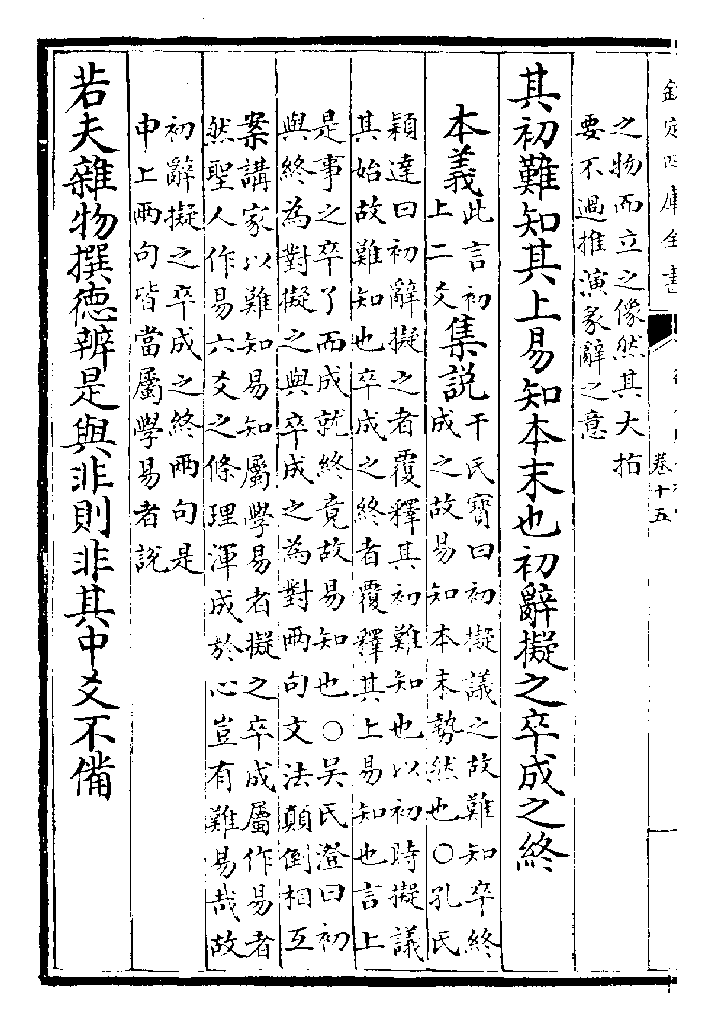 欽定四庫全書
卷十五
之物而立之像然其大㧞
要不過推演彖辭之意
其初難知其上易知本末也初辭擬之卒成之終
本義此言初
上二爻
集說干氏寶曰初擬議之故難知卒終
成之故易知本末勢然也○孔氏
穎達曰初辭擬之者覆釋其初難知也以初時擬議
其始故難知也卒成之終者覆釋其上易知也言上
是事之卒了而成就終竟故易知也○吳氏澄曰初
與終為對擬之與卒成之為對兩句文法顛倒相互
案講家以難知易知屬學易者擬之卒成屬作易者
然聖人作易六爻之條理渾成於心豈有難易哉故
初辭擬之卒成之終兩句是
申上兩句皆當屬學易者說
若夫雜物撰德辨是與非則非其中爻不備